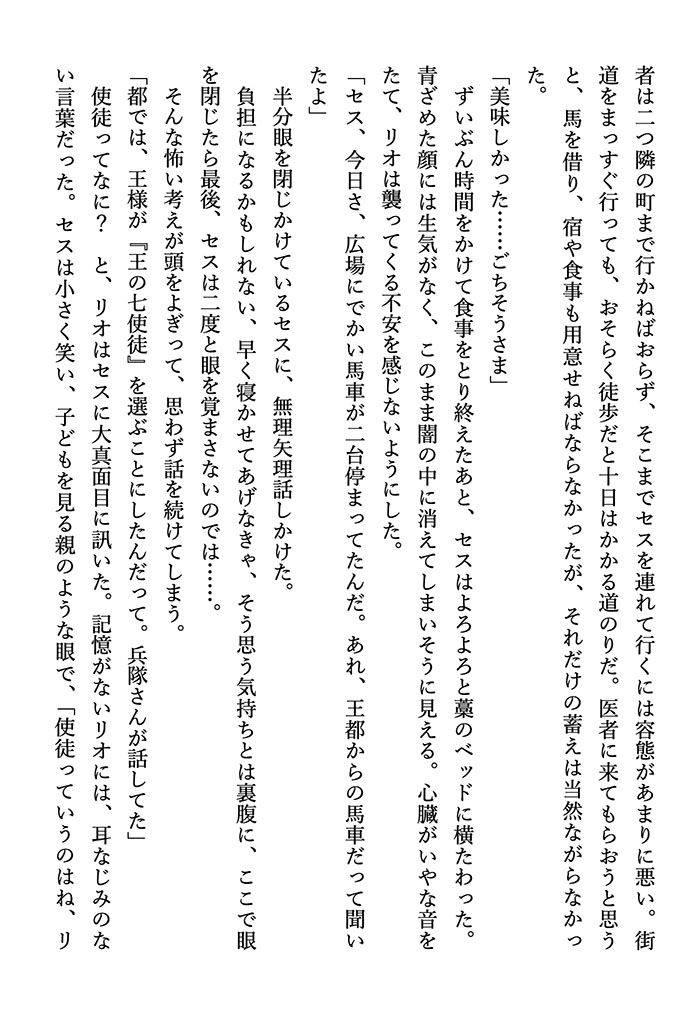 者は二つ隣の町まで行かねばおらず、そこまでセスを連れて行くには容態があまりに悪い。街
道をまっすぐ行っても、おそらく徒歩だと十日はかかる道のりだ。医者に来てもらおうと思う
と、馬を借り、宿や食事も用意せねばならなかったが、それだけの蓄えは当然ながらなかっ
た。
「美味しかった……ごちそうさま」
　ずいぶん時間をかけて食事をとり終えたあと、セスはよろよろと藁のベッドに横たわった。
青ざめた顔には生気がなく、このまま闇の中に消えてしまいそうに見える。心臓がいやな音を
たて、リオは襲ってくる不安を感じないようにした。
「セス、今日さ、広場にでかい馬車が二台停まってたんだ。あれ、王都からの馬車だって聞い
たよ」
　半分眼を閉じかけているセスに、無理矢理話しかけた。
　負担になるかもしれない、早く寝かせてあげなきゃ、そう思う気持ちとは裏腹に、ここで眼
を閉じたら最後、セスは二度と眼を覚まさないのでは……。
　そんな怖い考えが頭をよぎって、思わず話を続けてしまう。
「都では、王様が『王の七使徒』を選ぶことにしたんだって。兵隊さんが話してた」
　使徒ってなに？　と、リオはセスに大真面目に訊いた。記憶がないリオには、耳なじみのな
い言葉だった。セスは小さく笑い、子どもを見る親のような眼で、「使徒っていうのはね、リ